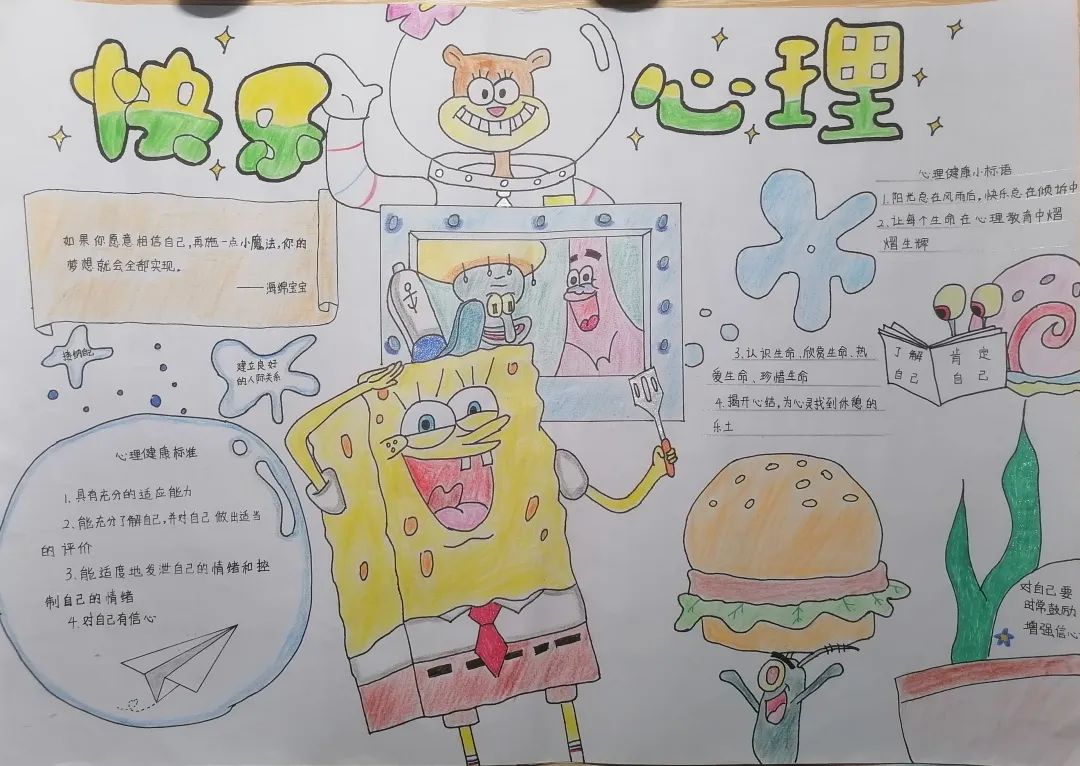 快乐
心理
如果你愿意相信自己,再施一点小魔法,你的
梦想就会全部实现。
——海绵宝宝
建立良好
的人际关系
心理健康标准
1.具有充分的适应能力
2.能充分了解自己,并对自己做出适当
的评价
3.能适度地发泄自己的情绪和控
制自己的情绪
4.对自己有信心
心理健康小标语
1.阳光总在风雨后,快乐总在倾诉中
2.让每个生命在心理教育中熠
熠生辉
3.认识生命、欣赏生命、热
爱生命、珍惜生命
4.揭开心结,为心灵找到休憩的
乐土
了解
自己
肯定
自己
对自己要
时常鼓励
增强信心